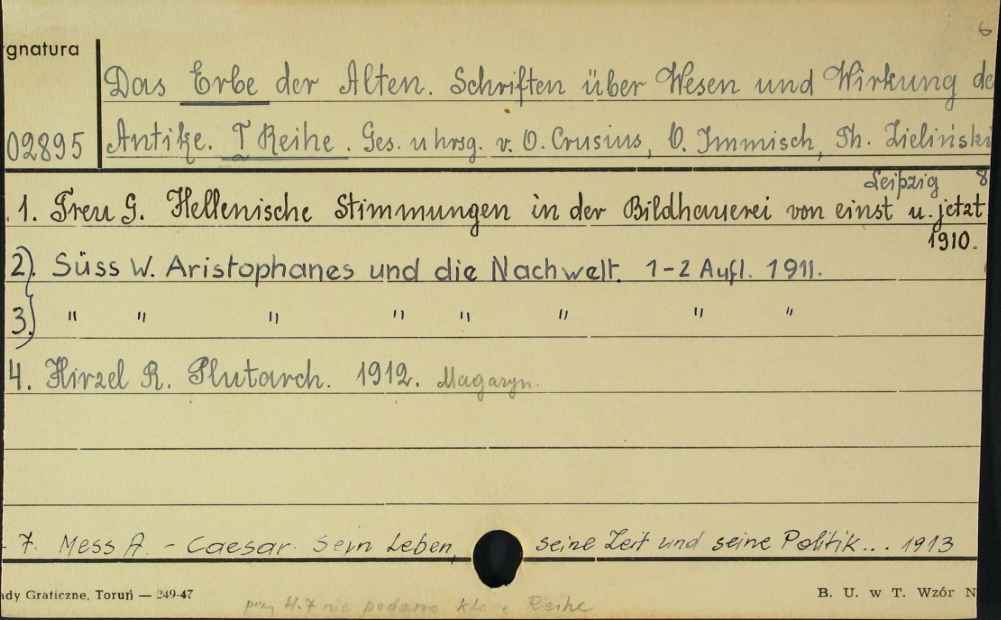 6
gnatura
Das Erbe der Alten. Schriften über Wesen und Wirkung de
02895 Antike. I Reihe. Ges. u hrsg. v. O. Crusius, O. Immisch, Th. Zieliński
Leipzig 8
1. Treu G. Hellenische Stimmungen in der Bildhauerei von einst u. jetzt
1910.
2). Süss W. Aristophanes und die Nachwelt. 1-2 Aufl. 1911.
3) " " " " " " " "
4. Hirzel R. Plutarch. 1912. Magazyn.
7. Mess A. - Caesar. Sein Leben, seine Zeit und seine Politik... 1913
ady Graficzne, Toruń — 249-47
B. U. w T. Wzór N
przy H.7 nie podano Reihe